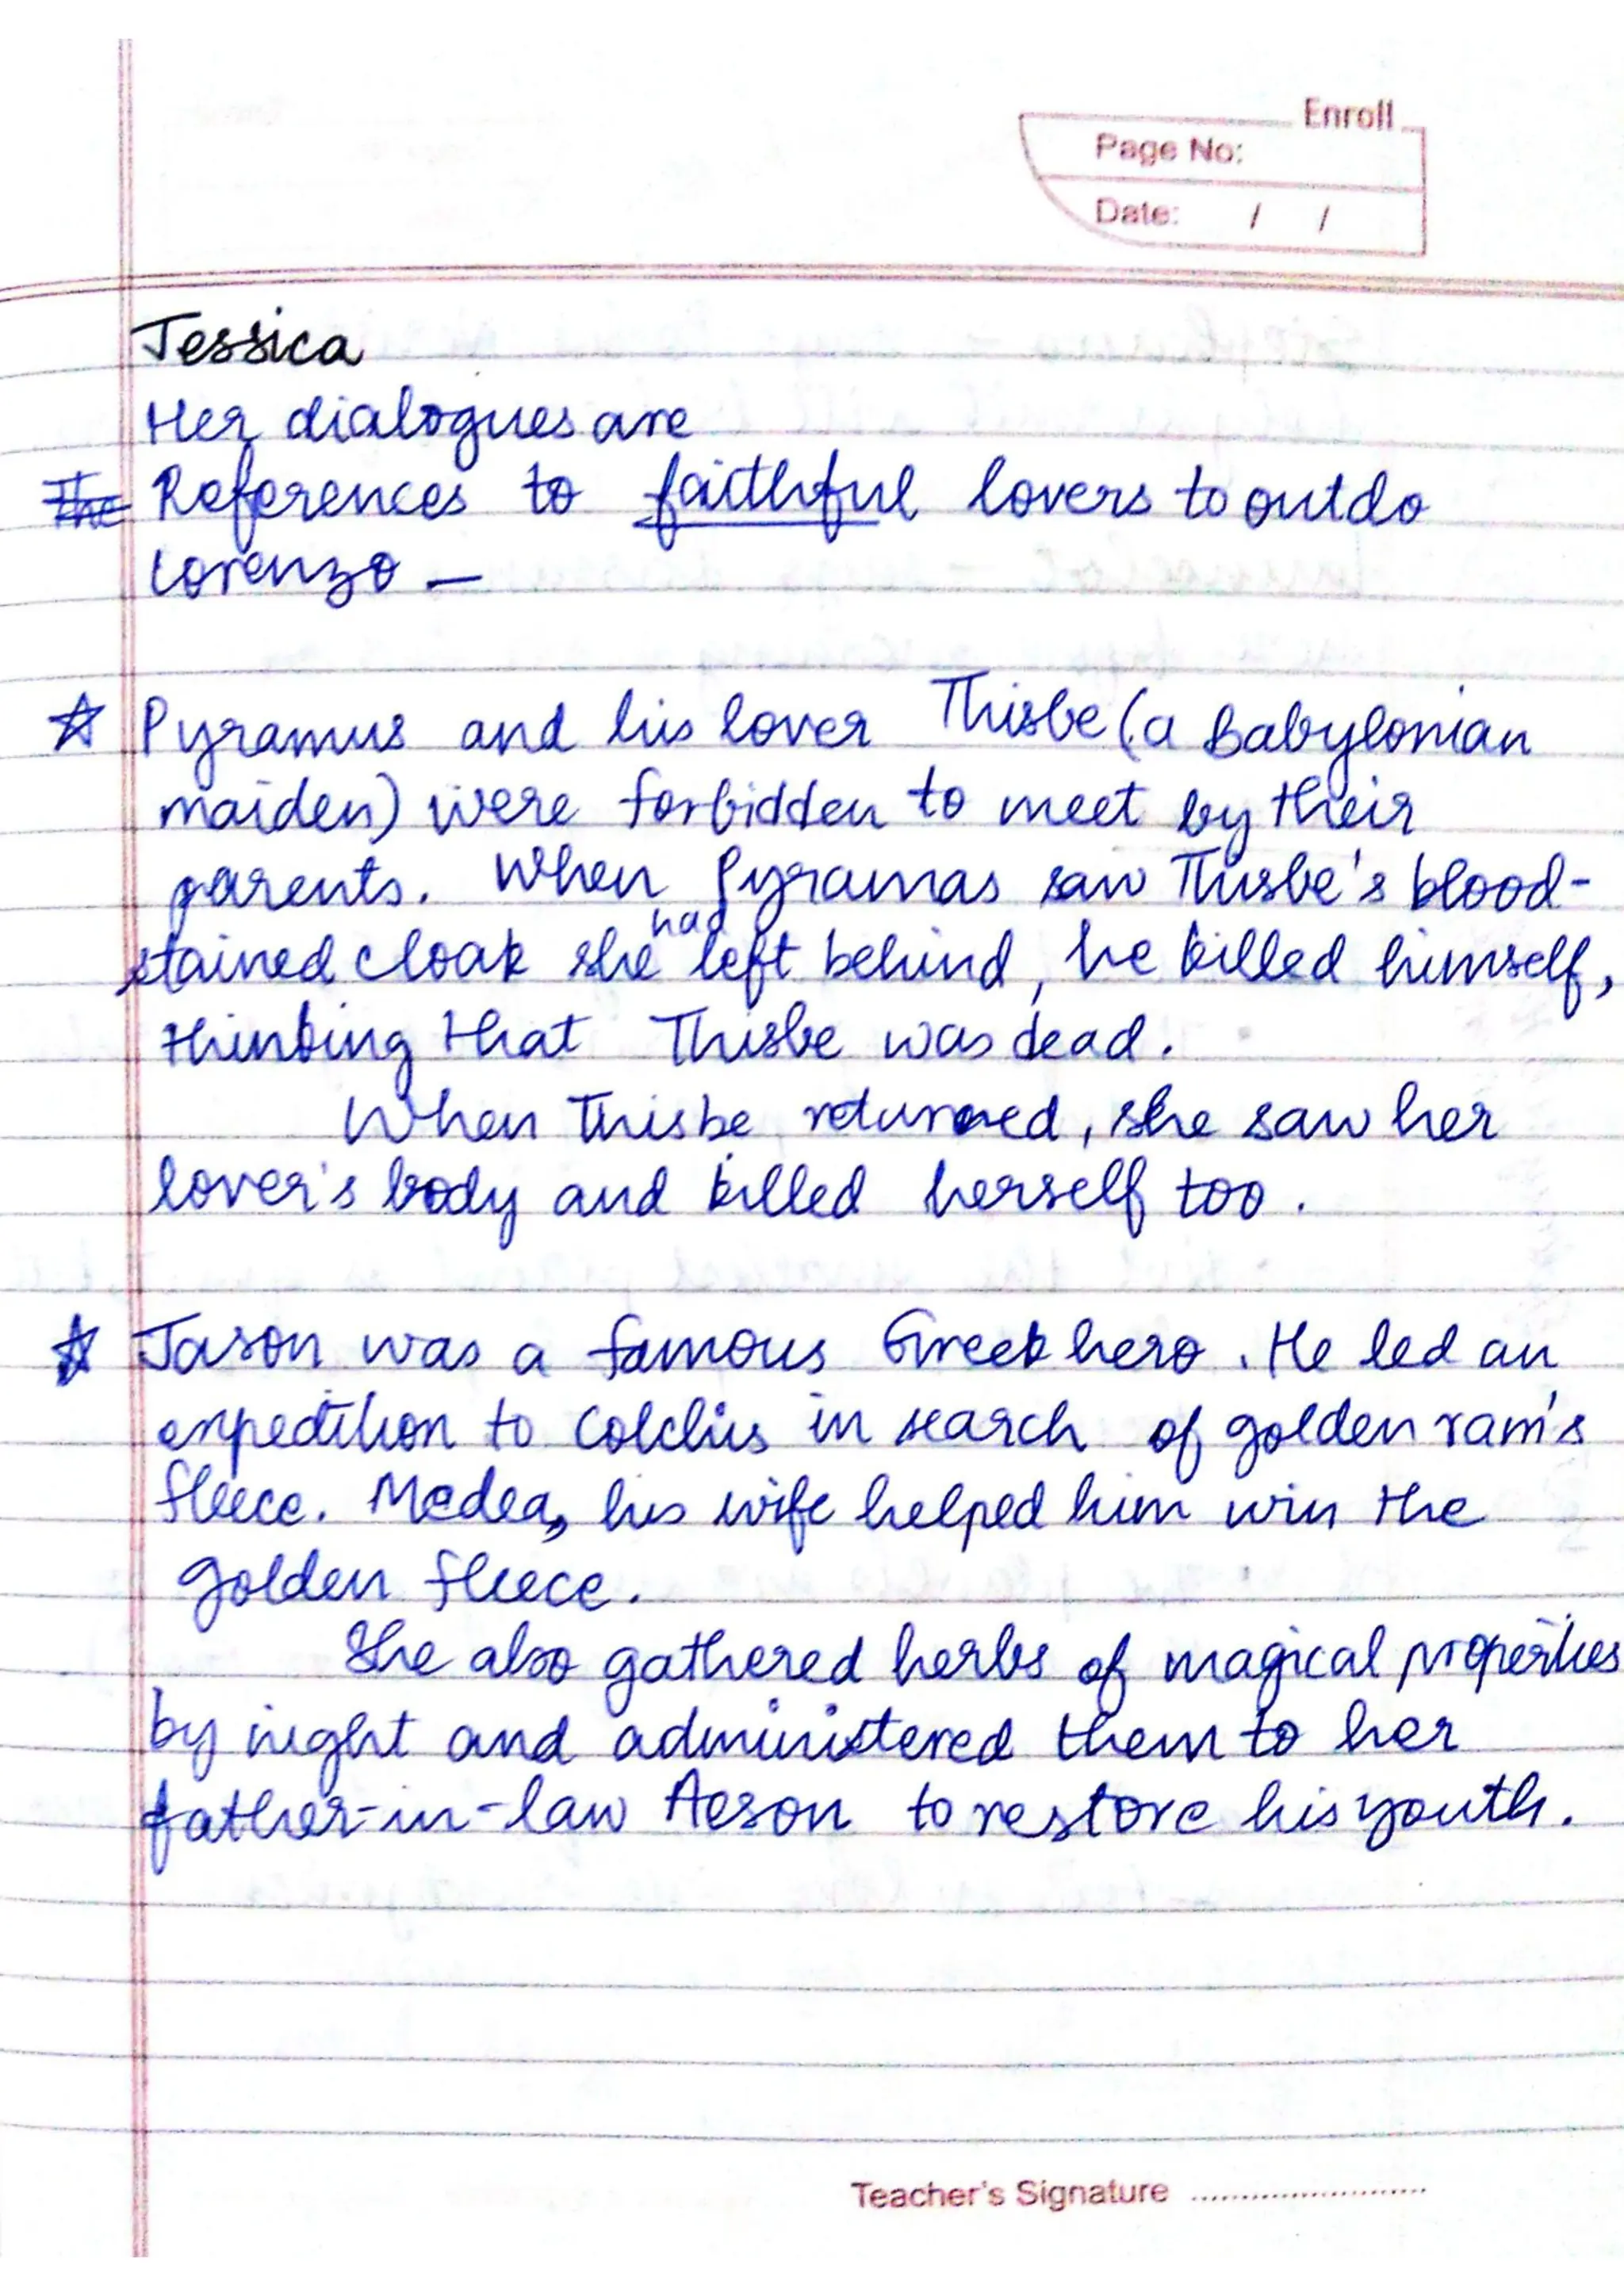 Enroll
Page No:
Date: / /
Jessica
Her dialogues are
The References to faithful lovers to outdo
Lorenzo —
☆ Pyramus and his lover Thisbe (a Babylonian
maiden) were forbidden to meet by their
parents. When Pyramas saw Thisbe's blood-
stained cloak she had left behind, he killed himself,
thinking that Thisbe was dead.
When Thisbe returned, she saw her
lover's body and killed herself too.
☆ Jason was a famous Greek hero. He led an
expedition to Colchis in search of golden ram's
fleece. Medea, his wife helped him win the
golden fleece.
She also gathered herbs of magical properties
by night and administered them to her
father-in-law Aeson to restore his youth.
Teacher's Signature ........................